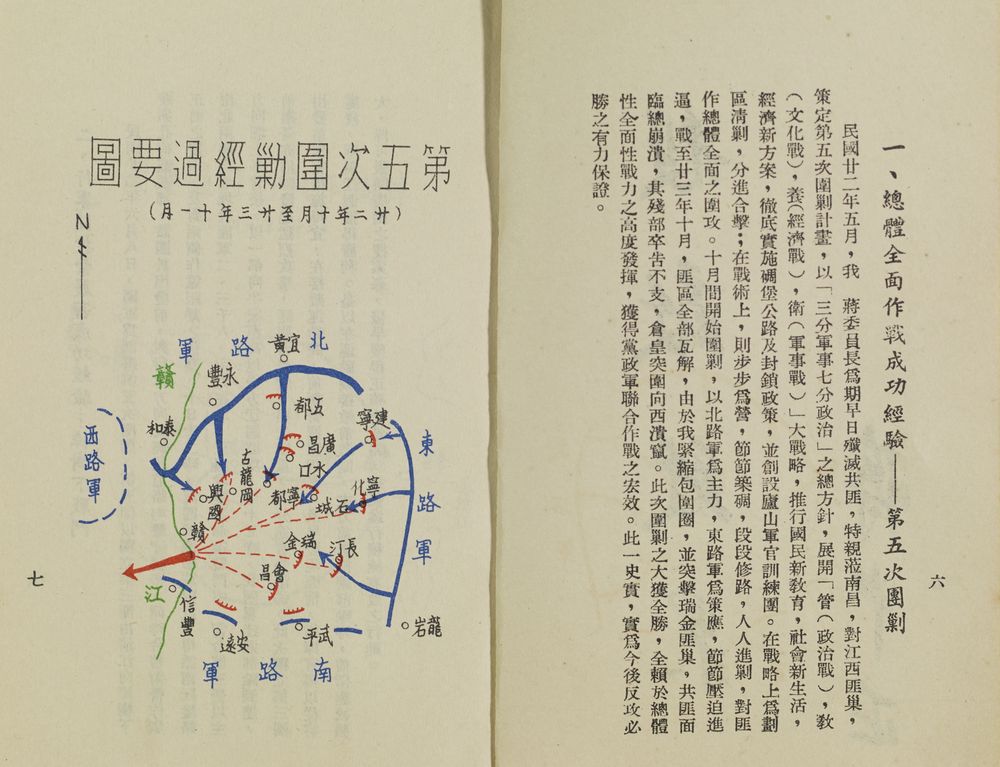 一、總體全面作戰成功經驗——第五次圍剿
民國廿二年五月，我　蔣委員長爲期早日殲滅共匪，特親蒞南昌，對江西匪巢，
策定第五次圍剿計畫，以「三分軍事七分政治」之總方針，展開「管（政治戰），敎
（文化戰），養（經濟戰），衛（軍事戰）」大戰略，推行國民新敎育，社會新生活，
經濟新方案，徹底實施碉堡公路及封鎖政策，並創設廬山軍官訓練團。在戰略上爲劃
區清剿，分進合擊；在戰術上，則步步爲營，節節築碉，段段修路，人人進剿，對匪
作總體全面之圍攻。十月間開始圍剿，以北路軍爲主力，東路軍爲策應，節節壓迫進
逼，戰至廿三年十月，匪區全部瓦解，由於我緊縮包圍圈，並突擊瑞金匪巢，共匪面
臨總崩潰，其殘部卒告不支，倉皇突圍向西潰竄。此次圍剿之大獲全勝，全賴於總體
性全面性戰力之高度發揮，獲得黨政軍聯合作戰之宏效。此一史實，實爲今後反攻必
勝之有力保證。
六
第五次圍勦經過要圖
（廿二年十月至廿三年十一月）
N
北路軍
宜黃
永豐
贛
五都
建寧
泰和
廣昌
水口
東路軍
西路軍
古龍岡
興國
寧都
石城
寧化
贛
瑞金
長汀
會昌
江
信豐
安遠
武平
龍岩
南路軍
七